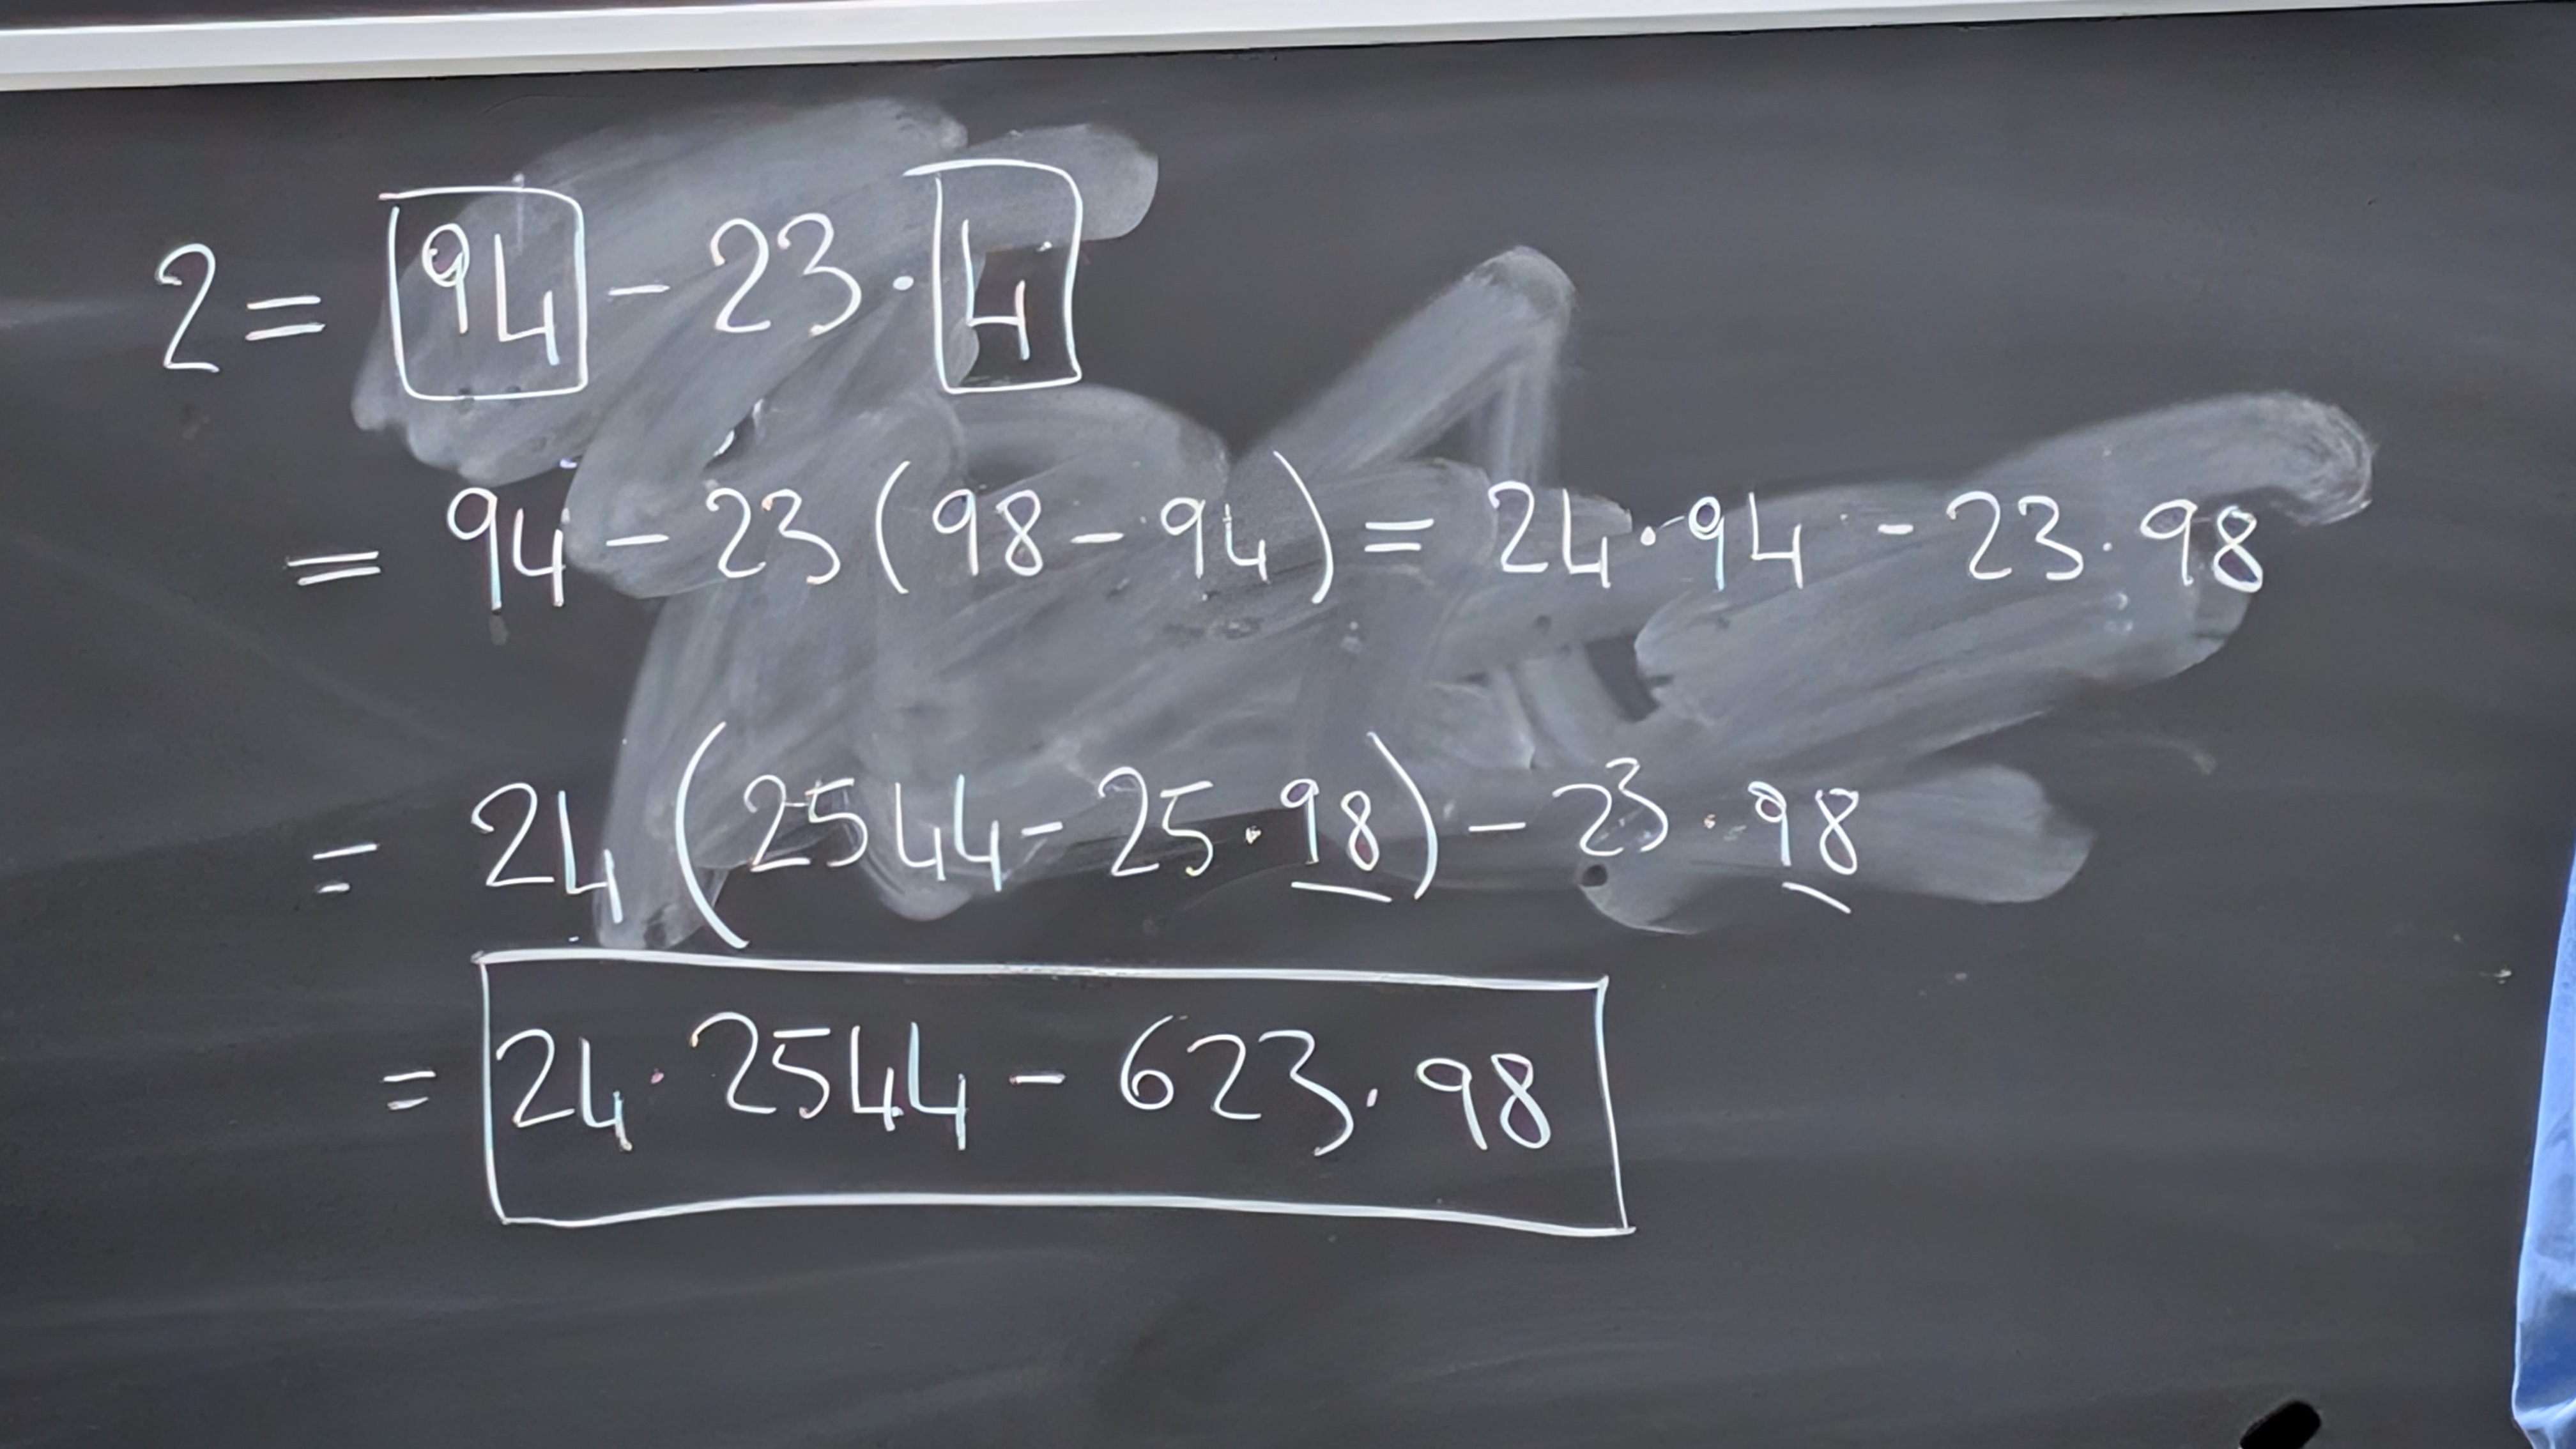 2 = 94 - 23 · 4
= 94 - 23 (98 - 94) = 24 · 94 - 23 · 98
= 24 (2544 - 25 · 98) - 23 · 98
= 24 · 2544 - 623 · 98